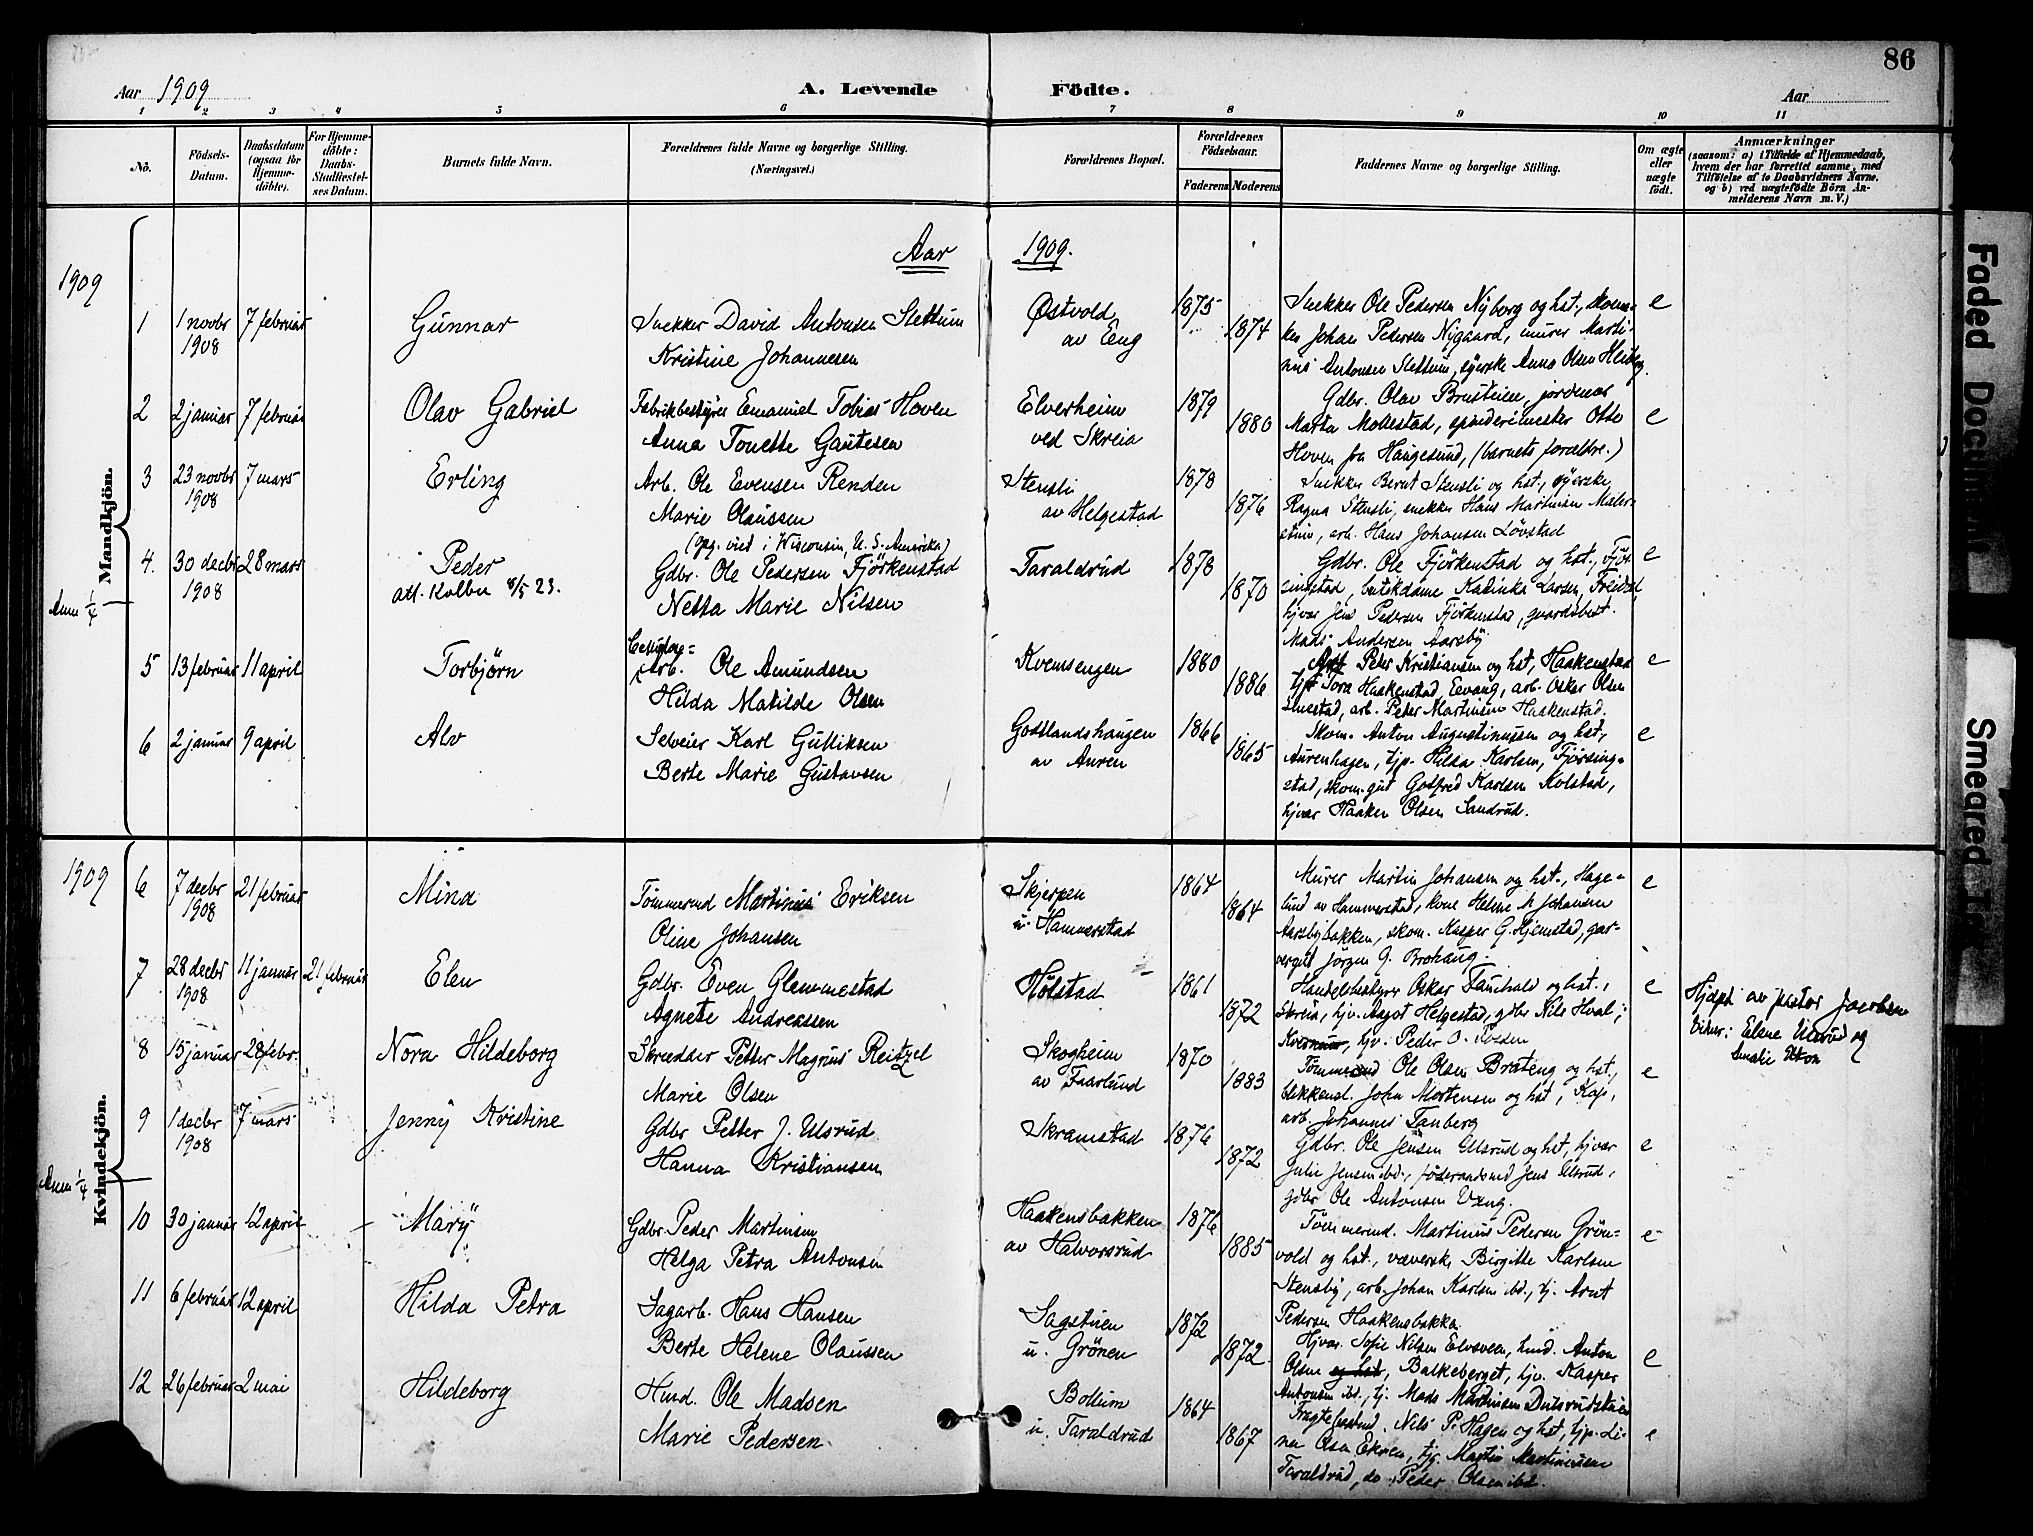 86
Aar 1909
A. Levende Födte.
Aar
1 2 3 4 5 6 7 8 9 10 11
No.
Födsels-Datum.
Daabsdatum (ogsaa for Hjemme-döbte).
For Hjemme-döbte: Daabs-Stadfæstel-ses Datum.
Barnets fulde Navn.
Forældrenes fulde Navne og borgerlige Stilling.
(Næringsvei.)
Forældrenes Bopæl.
Forældrenes Födselsaar.
Faderens Moderens
Faddernes Navne og borgerlige Stilling.
Om ægte eller uægte födt.
Anmærkninger
(saasom: a) i Tilfælde af Hjemmedaab, hvem der har forrettet samme, med Tilföielse af to Daabsvidners Navne, og b) ved uægtefödte Börn An-melderens Navn m. V.)
Aar 1909.
1909
Mandkjön.
1 1 novbr 1908 7 februar Gunnar
Snekker David Antonsen Slettum
Kristine Johannesen
Østvold
av Eeng
1875 1874
Snekker Ole Pedersen Nyborg og hst., skoma-
ker Johan Pedersen Nygaard, murer Marti-
nus Antonsen Slettum, syerske Anna Olsen
e
2 2 januar 7 februar Olav Gabriel
Fabrikbestyrer Emanuel Tobias Hoven
Anna Tonette Gautesen
Elverheim
ved Skreia
1879 1880
Gdbr. Olav Brusteien, jordmor
Marta Mollestad, spinderimester Otto
Hoven fra Haugesund, (barnets forældre.)
e
3 23 novbr 1908 7 mars Erling
Arb. Ole Evensen Renden
Marie Olaussen
(opg. viet i Wisconsin, U. S. Amerika)
Stensli
av Helgestad
1878 1876
Snekker Bernt Stensli og hst., syerske
Ragna Stensli, snekker Hans Martinsen Maler-
stuen, arb. Hans Johansen Lövstad
4. 30 decbr 1908 28 mars Peder
att. Kolbu 8/5 23.
Gdbr. Ole Pedersen Fjörkenstad
Netta Marie Nilsen
Taraldrud
1878 1870
Gdbr. Ole Fjörkenstad og hst., Fjör-
singstad, butikdame Katinka Larsen,
hjvær Jens Pedersen Fjörkenstad, gaardsbest.
Mads Andersen Aarsby
e
Anm 1/4
5 13 februar 11 april Torbjörn
Arb. Ole Amundsen
Hilda Matilde Olsen
Kvemsengen
1880 1886
Peter Kristiansen og hst, Haakenstad
tjp Tora Haakenstad, Eevang, arb. Oskar Olsen
arb. Peter Martinsen Haakenstad.
e
6 2 januar 9 april Alv
Selveier Karl Gulliksen
Berte Marie Gustavsen
Gotlandshaugen
av Auren
1866 1865
Skom. Anton Augustinussen og hst,
Aurenhagen, tjp. Hilda Karlsen, Fjörsing-
stad, skom.gut Gotfred Karlsen Kolstad,
hjvær Haaken Olsen Sandrud.
e
1909
Kvindekjön.
6 7 decbr 1908 21 februar Mina
Tömmermd Martinius Eriksen
Oline Johansen
Skjerpen
u. Hammerstad
1864 1864
Murer Martin Johansen og hst., Hage-
lund av Hammerstad, kone Helene M Johansen
Aarsbybakken, skom. Kasper G. Hjemstad, gar-
vergut Jörgen G. Brohaug.
e
7 28 decbr 1908 11 januar 21 februar Elen
Gdbr. Even Glemmestad
Agnete Andreassen
Hölstad
1861 1872
Handelsbestyrer Oskar Fauchald og hst.,
Skreia, hjv. Aagot Helgestad, gdbr Nils Hval;
hjv. Peder O. Rosden
e
Hjdpt av pastor Jacobsen
Vidner: Elene Ulsrud og
8 15 januar 28 febr. Nora Hildeborg
Skrædder Petter Magnus Reitzel
Marie Olsen
Skogheim
av Faarlund
1870 1883
Tömmermd Ole Olsen Brateng og hst.,
blikkensl. John Mortensen og hst, Kap,
arb. Johannes Tanberg
e
9 1 decbr 1908 7 mars Jenny Kristine
Gdbr Petter J. Ulsrud
Hanna Kristiansen
Skramstad
1876 1872
Gdbr. Ole Jensen Ullsrud og hst, hjvær
Julie Jensen ibd., föderaadsmd Jens Ulsrud,
gdbr Ole Antonsen Eeng.
e
Anm 1/4
10 30 januar 12 april Mary
Gdbr. Peder Martinsen
Helga Petra Antonsen
Haakensbakken
av Halvorsrud
1876 1885
Tömmermd. Martinius Pedersen Grön-
vold og hst., væverske Birgitte Karlsen
Stensby, arb. Johan Karlsen ibd., tj. Arnt
Pedersen Haakensbakke
e
11 6 februar 12 april Hilda Petra
Sagarb. Hans Hansen
Berte Helene Olaussen
Sagstuen
u. Grönen
1872 1872
Hjvær. Sofie Nilsen Elvsveen, hmd. Anton
Olsen og hst, Balkeberget, hjv. Kasper
Antonsen ibd., tj. Mads Martinsen
e
12 26 februar 2 mai Hildeborg
Hmd. Ole Madsen
Marie Pedersen
Bollum
u. Taraldrud
1864 1867
Nils P. Hagen og hst, tjp. Li-
na Olsen Ekren, tjg. Martin Martiniussen
Taraldrud, do. Peder Olsen ibd.
e
Faded Document
Smeared